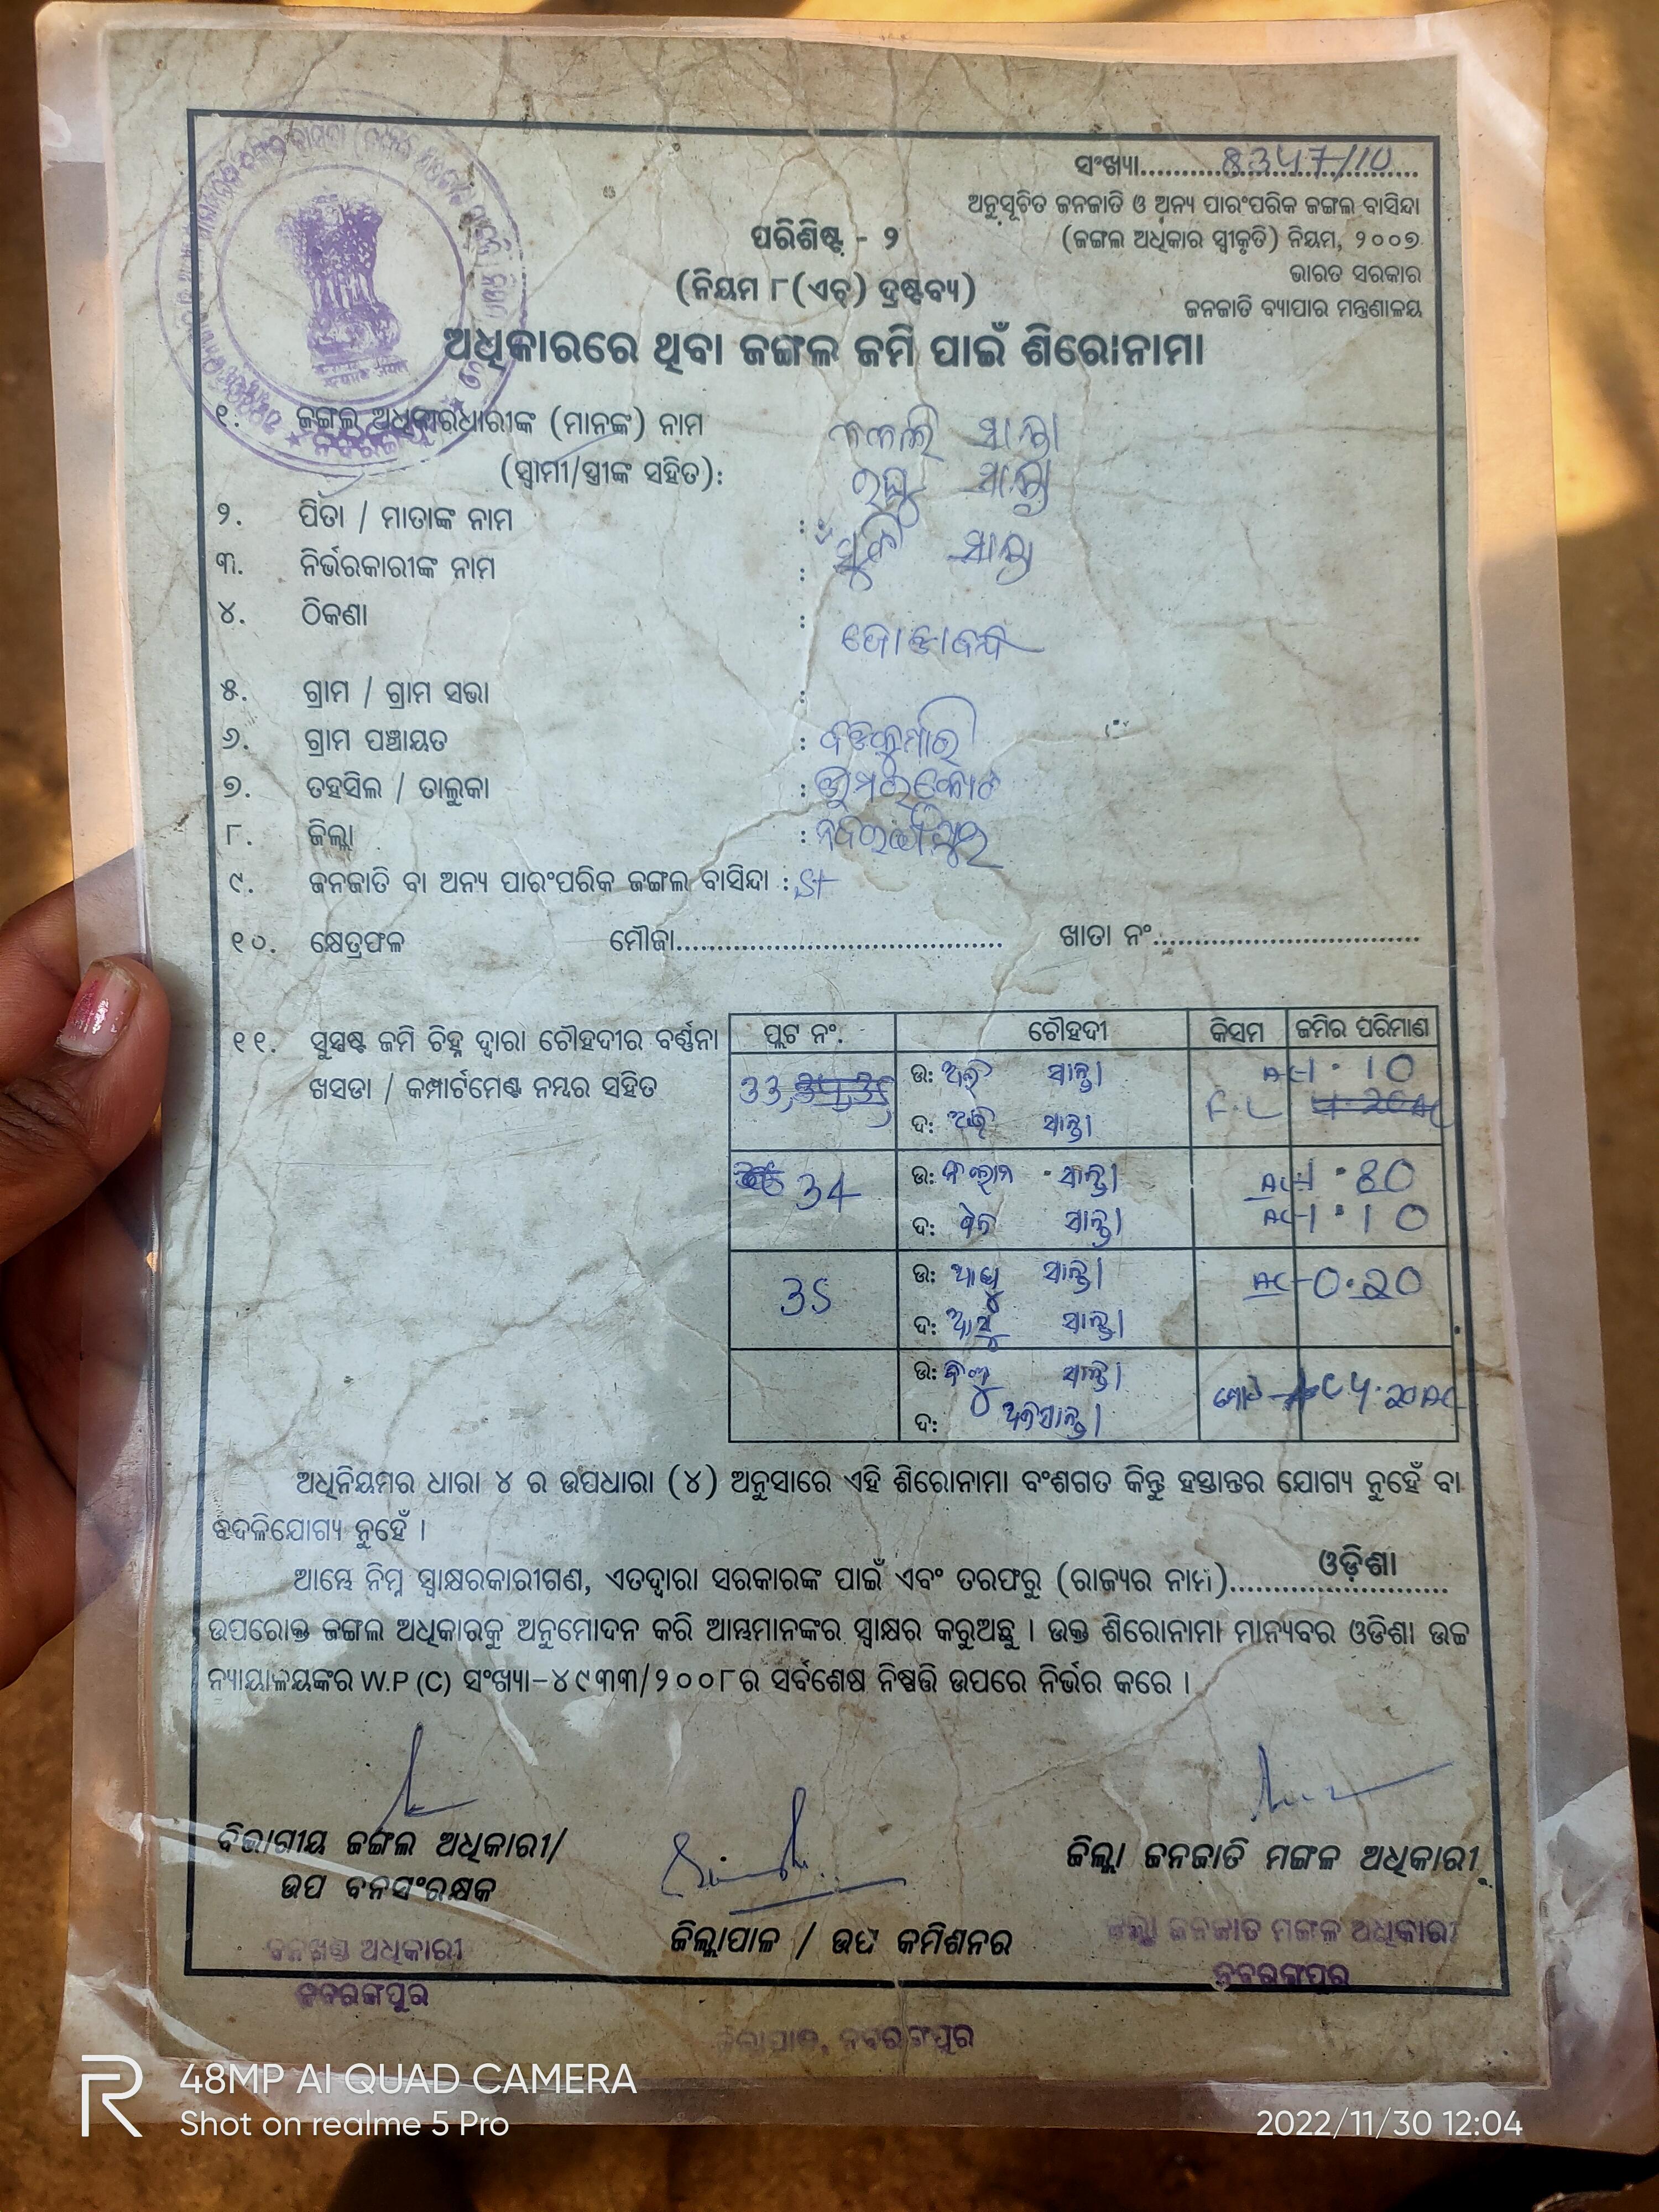 ସଂଖ୍ୟା.................8347/10
ଅନୁସୂଚିତ ଜନଜାତି ଓ ଅନ୍ୟ ପାରଂପରିକ ଜଙ୍ଗଲ ବାସିନ୍ଦା
(ଜଙ୍ଗଲ ଅଧିକାର ସ୍ୱୀକୃତି) ନିୟମ, ୨୦୦୭
ଭାରତ ସରକାର
ଜନଜାତି ବ୍ୟାପାର ମନ୍ତ୍ରଣାଳୟ
ପରିଶିଷ୍ଟ - ୨
(ନିୟମ ୮(ଏଚ୍) ଦ୍ରଷ୍ଟବ୍ୟ)
ଅଧିକାରରେ ଥିବା ଜଙ୍ଗଲ ଜମି ପାଇଁ ଶିରୋନାମା
୧. ଜଙ୍ଗଲ ଅଧିକାରଧାରୀଙ୍କ (ମାନଙ୍କ) ନାମ
(ସ୍ୱାମୀ/ସ୍ତ୍ରୀଙ୍କ ସହିତ):
୨. ପିତା / ମାତାଙ୍କ ନାମ :
୩. ନିର୍ଭରକାରୀଙ୍କ ନାମ :
୪. ଠିକଣା :
୫. ଗ୍ରାମ / ଗ୍ରାମ ସଭା :
୬. ଗ୍ରାମ ପଞ୍ଚାୟତ :
୭. ତହସିଲ / ତାଲୁକା : ଉମରକୋଟ
୮. ଜିଲ୍ଲା : ନବରଙ୍ଗପୁର
୯. ଜନଜାତି ବା ଅନ୍ୟ ପାରଂପରିକ ଜଙ୍ଗଲ ବାସିନ୍ଦା : ST
୧୦. କ୍ଷେତ୍ରଫଳ ମୌଜା........................................ ଖାତା ନଂ.................................
୧୧. ସୁସ୍ପଷ୍ଟ ଜମି ଚିହ୍ନ ଦ୍ୱାରା ଚୌହଦୀର ବର୍ଣ୍ଣନା
ଖସଡା / କମ୍ପାର୍ଟମେଣ୍ଟ ନମ୍ବର ସହିତ
ପ୍ଲଟ ନଂ. ଚୌହଦୀ କିସମ ଜମିର ପରିମାଣ
33, ଉ: ସାନ୍ତା AC-1.10
ଦ: ସାନ୍ତା F.L
34 ଉ: ସାନ୍ତା AC-1.80
ଦ: ସାନ୍ତା AC-1.10
35 ଉ: ସାନ୍ତା AC-0.20
ଦ: ସାନ୍ତା
ଉ: ସାନ୍ତା 4.20 AC
ଦ:
ଅଧିନିୟମର ଧାରା ୪ ର ଉପଧାରା (୪) ଅନୁସାରେ ଏହି ଶିରୋନାମା ବଂଶଗତ କିନ୍ତୁ ହସ୍ତାନ୍ତର ଯୋଗ୍ୟ ନୁହେଁ ବା
ବଦଳିଯୋଗ୍ୟ ନୁହେଁ ।
ଆମ୍ଭେ ନିମ୍ନ ସ୍ୱାକ୍ଷରକାରୀଗଣ, ଏତଦ୍ୱାରା ସରକାରଙ୍କ ପାଇଁ ଏବଂ ତରଫରୁ (ରାଜ୍ୟର ନାମ)..........ଓଡ଼ିଶା..........
ଉପରୋକ୍ତ ଜଙ୍ଗଲ ଅଧିକାରକୁ ଅନୁମୋଦନ କରି ଆମ୍ଭମାନଙ୍କର ସ୍ୱାକ୍ଷର କରୁଅଛୁ । ଉକ୍ତ ଶିରୋନାମା ମାନ୍ୟବର ଓଡିଶା ଉଚ୍ଚ
ନ୍ୟାୟାଳୟଙ୍କର W.P (C) ସଂଖ୍ୟା-୪୯୩୩/୨୦୦୮ର ସର୍ବଶେଷ ନିଷ୍ପତ୍ତି ଉପରେ ନିର୍ଭର କରେ ।
ବିଭାଗୀୟ ଜଙ୍ଗଲ ଅଧିକାରୀ/
ଉପ ବନସଂରକ୍ଷକ
ଜିଲ୍ଲାପାଳ / ଉପ କମିଶନର
ଜିଲ୍ଲା ଜନଜାତି ମଙ୍ଗଳ ଅଧିକାରୀ
ବନଖଣ୍ଡ ଅଧିକାରୀ
ନବରଙ୍ଗପୁର
ଜିଲ୍ଲାପାଳ, ନବରଙ୍ଗପୁର
ଜିଲ୍ଲା ଜନଜାତି ମଙ୍ଗଳ ଅଧିକାରୀ
ନବରଙ୍ଗପୁର
48MP AI QUAD CAMERA
Shot on realme 5 Pro
2022/11/30 12:04